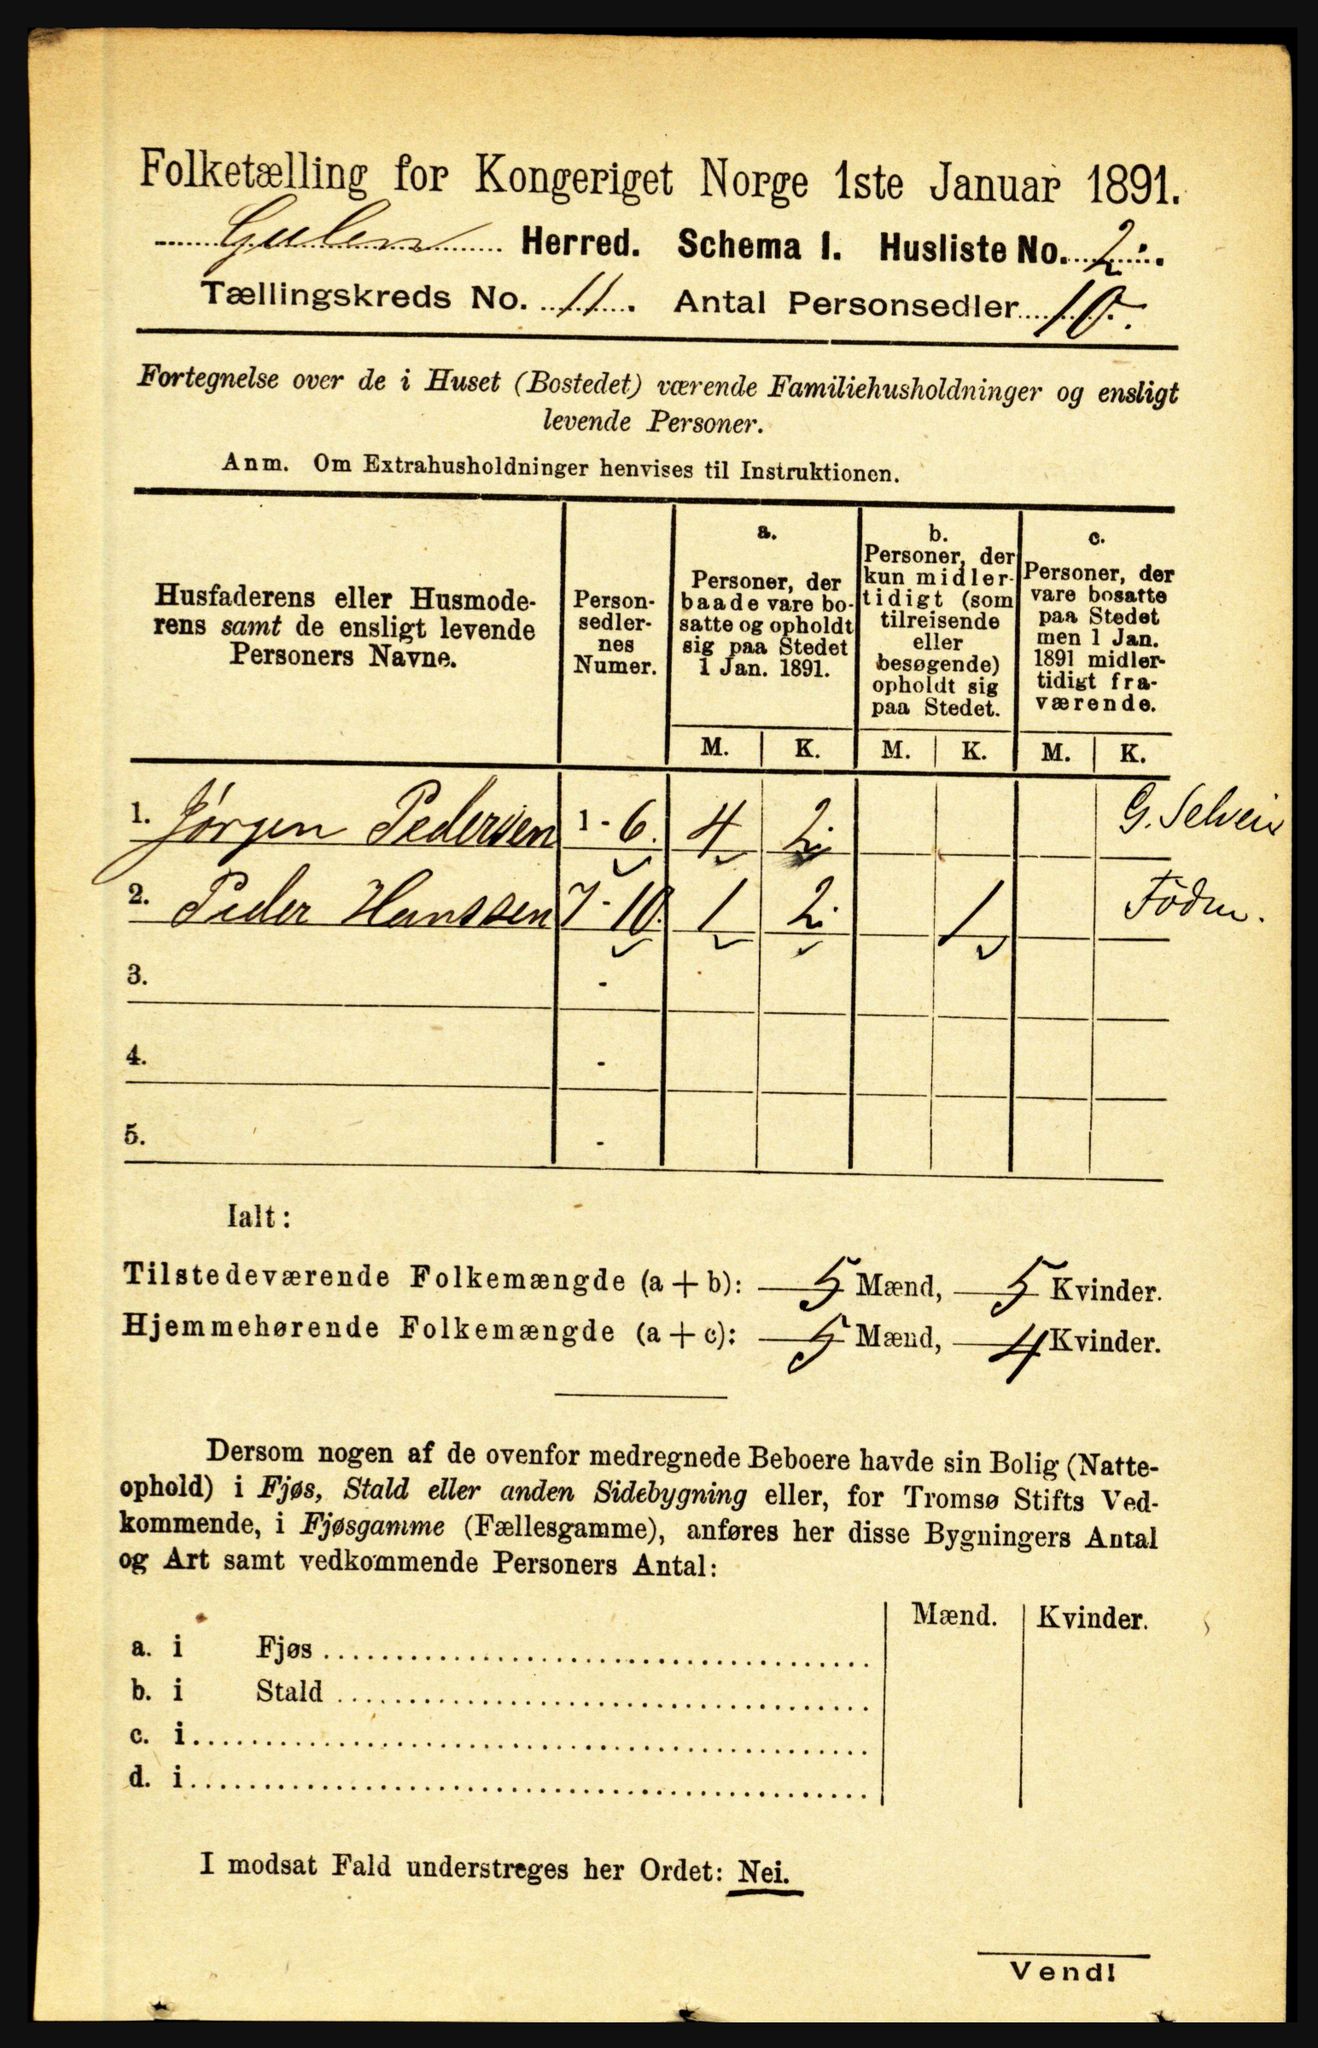 Folketælling for Kongeriget Norge 1ste Januar 1891.
Gulen Herred. Schema I. Husliste No. 2.
Tællingskreds No. 11. Antal Personsedler 10.
Fortegnelse over de i Huset (Bostedet) værende Familiehusholdninger og ensligt
levende Personer.
Anm. Om Extrahusholdninger henvises til Instruktionen.
Husfaderens eller Husmode-
rens samt de ensligt levende
Personers Navne.
Person-
sedler-
nes
Numer.
a.
Personer, der
baade vare bo-
satte og opholdt
sig paa Stedet
1 Jan. 1891.
b.
Personer, der
kun midler-
tidigt (som
tilreisende
eller
besøgende)
opholdt sig
paa Stedet.
c.
Personer, der
vare bosatte
paa Stedet
men 1 Jan.
1891 midler-
tidigt fra-
værende.
M. K. M. K. M. K.
1. Jørgen Pedersen 1 - 6. 4 2. G.
2. Peder Hanssen 7 - 10. 1 2. 1
3. -
4. -
5. -
Ialt:
Tilstedeværende Folkemængde (a + b): 5 Mænd, 5 Kvinder.
Hjemmehørende Folkemængde (a + c): 5 Mænd, 4 Kvinder.
Dersom nogen af de ovenfor medregnede Beboere havde sin Bolig (Natte-
ophold) i Fjøs, Stald eller anden Sidebygning eller, for Tromsø Stifts Ved-
kommende, i Fjøsgamme (Fællesgamme), anføres her disse Bygningers Antal
og Art samt vedkommende Personers Antal:
Mænd. Kvinder.
a. i Fjøs
b. i Stald
c. i
d. i
I modsat Fald understreges her Ordet: Nei.
Vend!